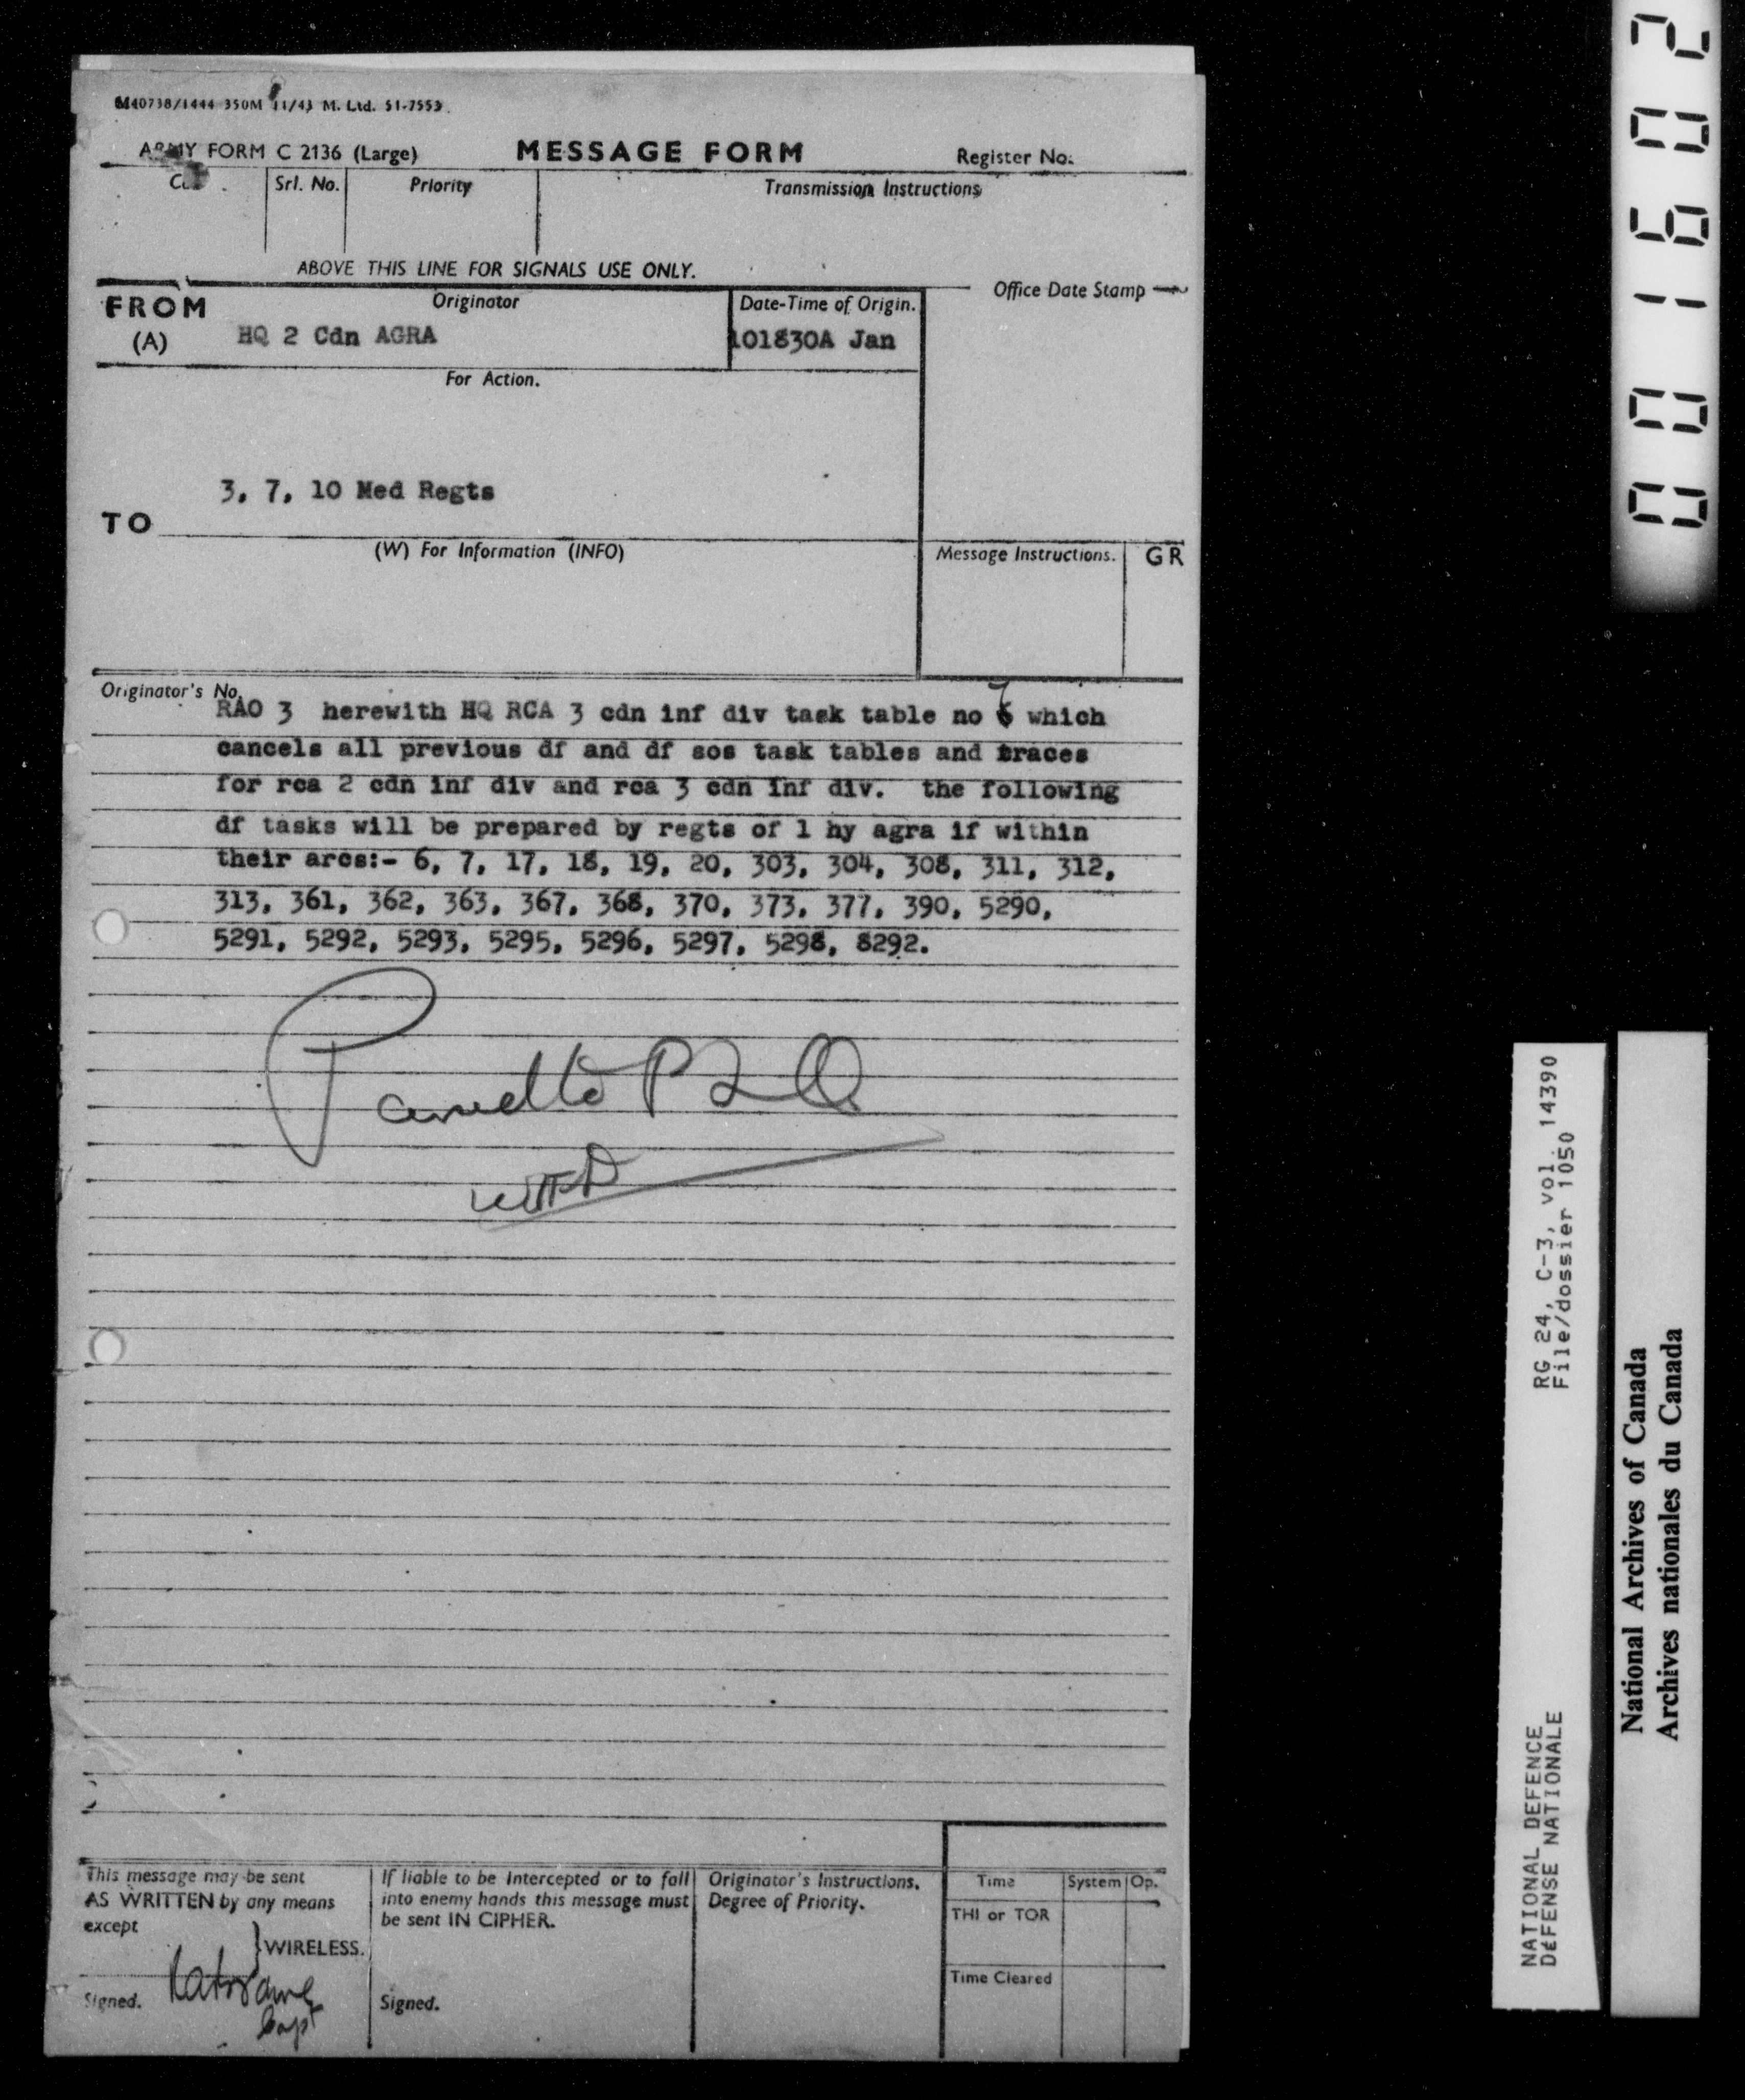 M40738/1444 350M 11/43 M. Ltd. 51-7553.
ARMY FORM C 2136 (Large)
MESSAGE FORM
Register No.
Srl. No.
Priority
Transmission Instructions
ABOVE THIS LINE FOR SIGNALS USE ONLY.
FROM
(A)
Originator
HQ 2 Cdn AGRA
Date-Time of Origin.
101830A Jan
Office Date Stamp
For Action.
3, 7, 10 Med Regts
TO
(W) For Information (INFO)
Message Instructions.
GR
Originator's No.
7
RAO 3 herewith HQ RCA 3 cdn inf div task table no 6 which
cancels all previous df and df sos task tables and traces
for rca 2 cdn inf div and rca 3 cdn inf div. the following
df tasks will be prepared by regts of 1 hy agra if within
their arcs:- 6, 7, 17, 18, 19, 20, 303, 304, 308, 311, 312,
313, 361, 362, 363, 367, 368, 370, 373, 377, 390, 5290,
5291, 5292, 5293, 5295, 5296, 5297, 5298, 8292.
This message may be sent
AS WRITTEN by any means
except
}WIRELESS.
Signed.
Capt
If liable to be Intercepted or to fall
into enemy hands this message must
be sent IN CIPHER.
Signed.
Originator's Instructions.
Degree of Priority.
Time
System
Op.
THI or TOR
Time Cleared
001602
RG 24, C-3, vol. 14390
File/dossier 1050
NATIONAL DEFENCE
DÉFENSE NATIONALE
National Archives of Canada
Archives nationales du Canada